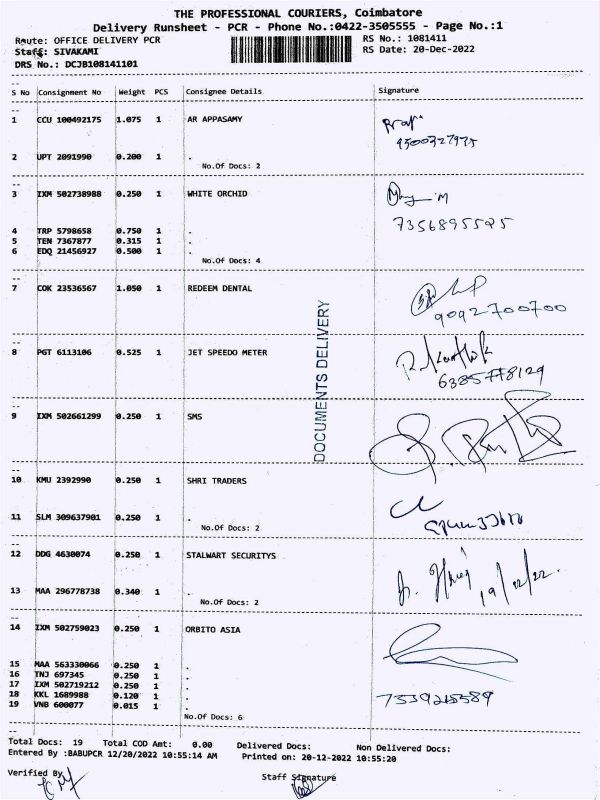 THE PROFESSIONAL COURIERS, Coimbatore
Delivery Runsheet - PCR - Phone No.:0422-3505555 - Page No.:1
Route: OFFICE DELIVERY PCR
RS No.: 1081411
Staff: SIVAKAMI
RS Date: 20-Dec-2022
DRS No.: DCJB108141101
S No Consignment No Weight PCS Consignee Details Signature
1 CCU 100492175 1.075 1 AR APPASAMY
9500327975
2 UPT 2091990 0.200 1 .
No.Of Docs: 2
3 IXM 502738988 0.250 1 WHITE ORCHID
7356895525
4 TRP 5798658 0.750 1 .
5 TEN 7367877 0.315 1 .
6 EDQ 21456927 0.500 1 .
No.Of Docs: 4
7 COK 23536567 1.050 1 REDEEM DENTAL
9092700700
DOCUMENTS DELIVERY
8 PGT 6113106 0.525 1 JET SPEEDO METER
R. Karthik
6385778129
9 IXM 502661299 0.250 1 SMS
10 KMU 2392990 0.250 1 SHRI TRADERS
11 SLM 309637901 0.250 1 .
No.Of Docs: 2
12 DDG 4630074 0.250 1 STALWART SECURITYS
19/12/22.
13 MAA 296778738 0.340 1 .
No.Of Docs: 2
14 IXM 502759023 0.250 1 ORBITO ASIA
15 MAA 563330066 0.250 1 .
16 TNJ 697345 0.250 1 .
17 IXM 502719212 0.250 1 .
18 KKL 1689988 0.120 1 .
19 VNB 600077 0.015 1 .
No.Of Docs: 6
Total Docs: 19 Total COD Amt: 0.00 Delivered Docs: Non Delivered Docs:
Entered By :BABUPCR 12/20/2022 10:55:14 AM Printed on: 20-12-2022 10:55:20
Verified By
Staff Signature